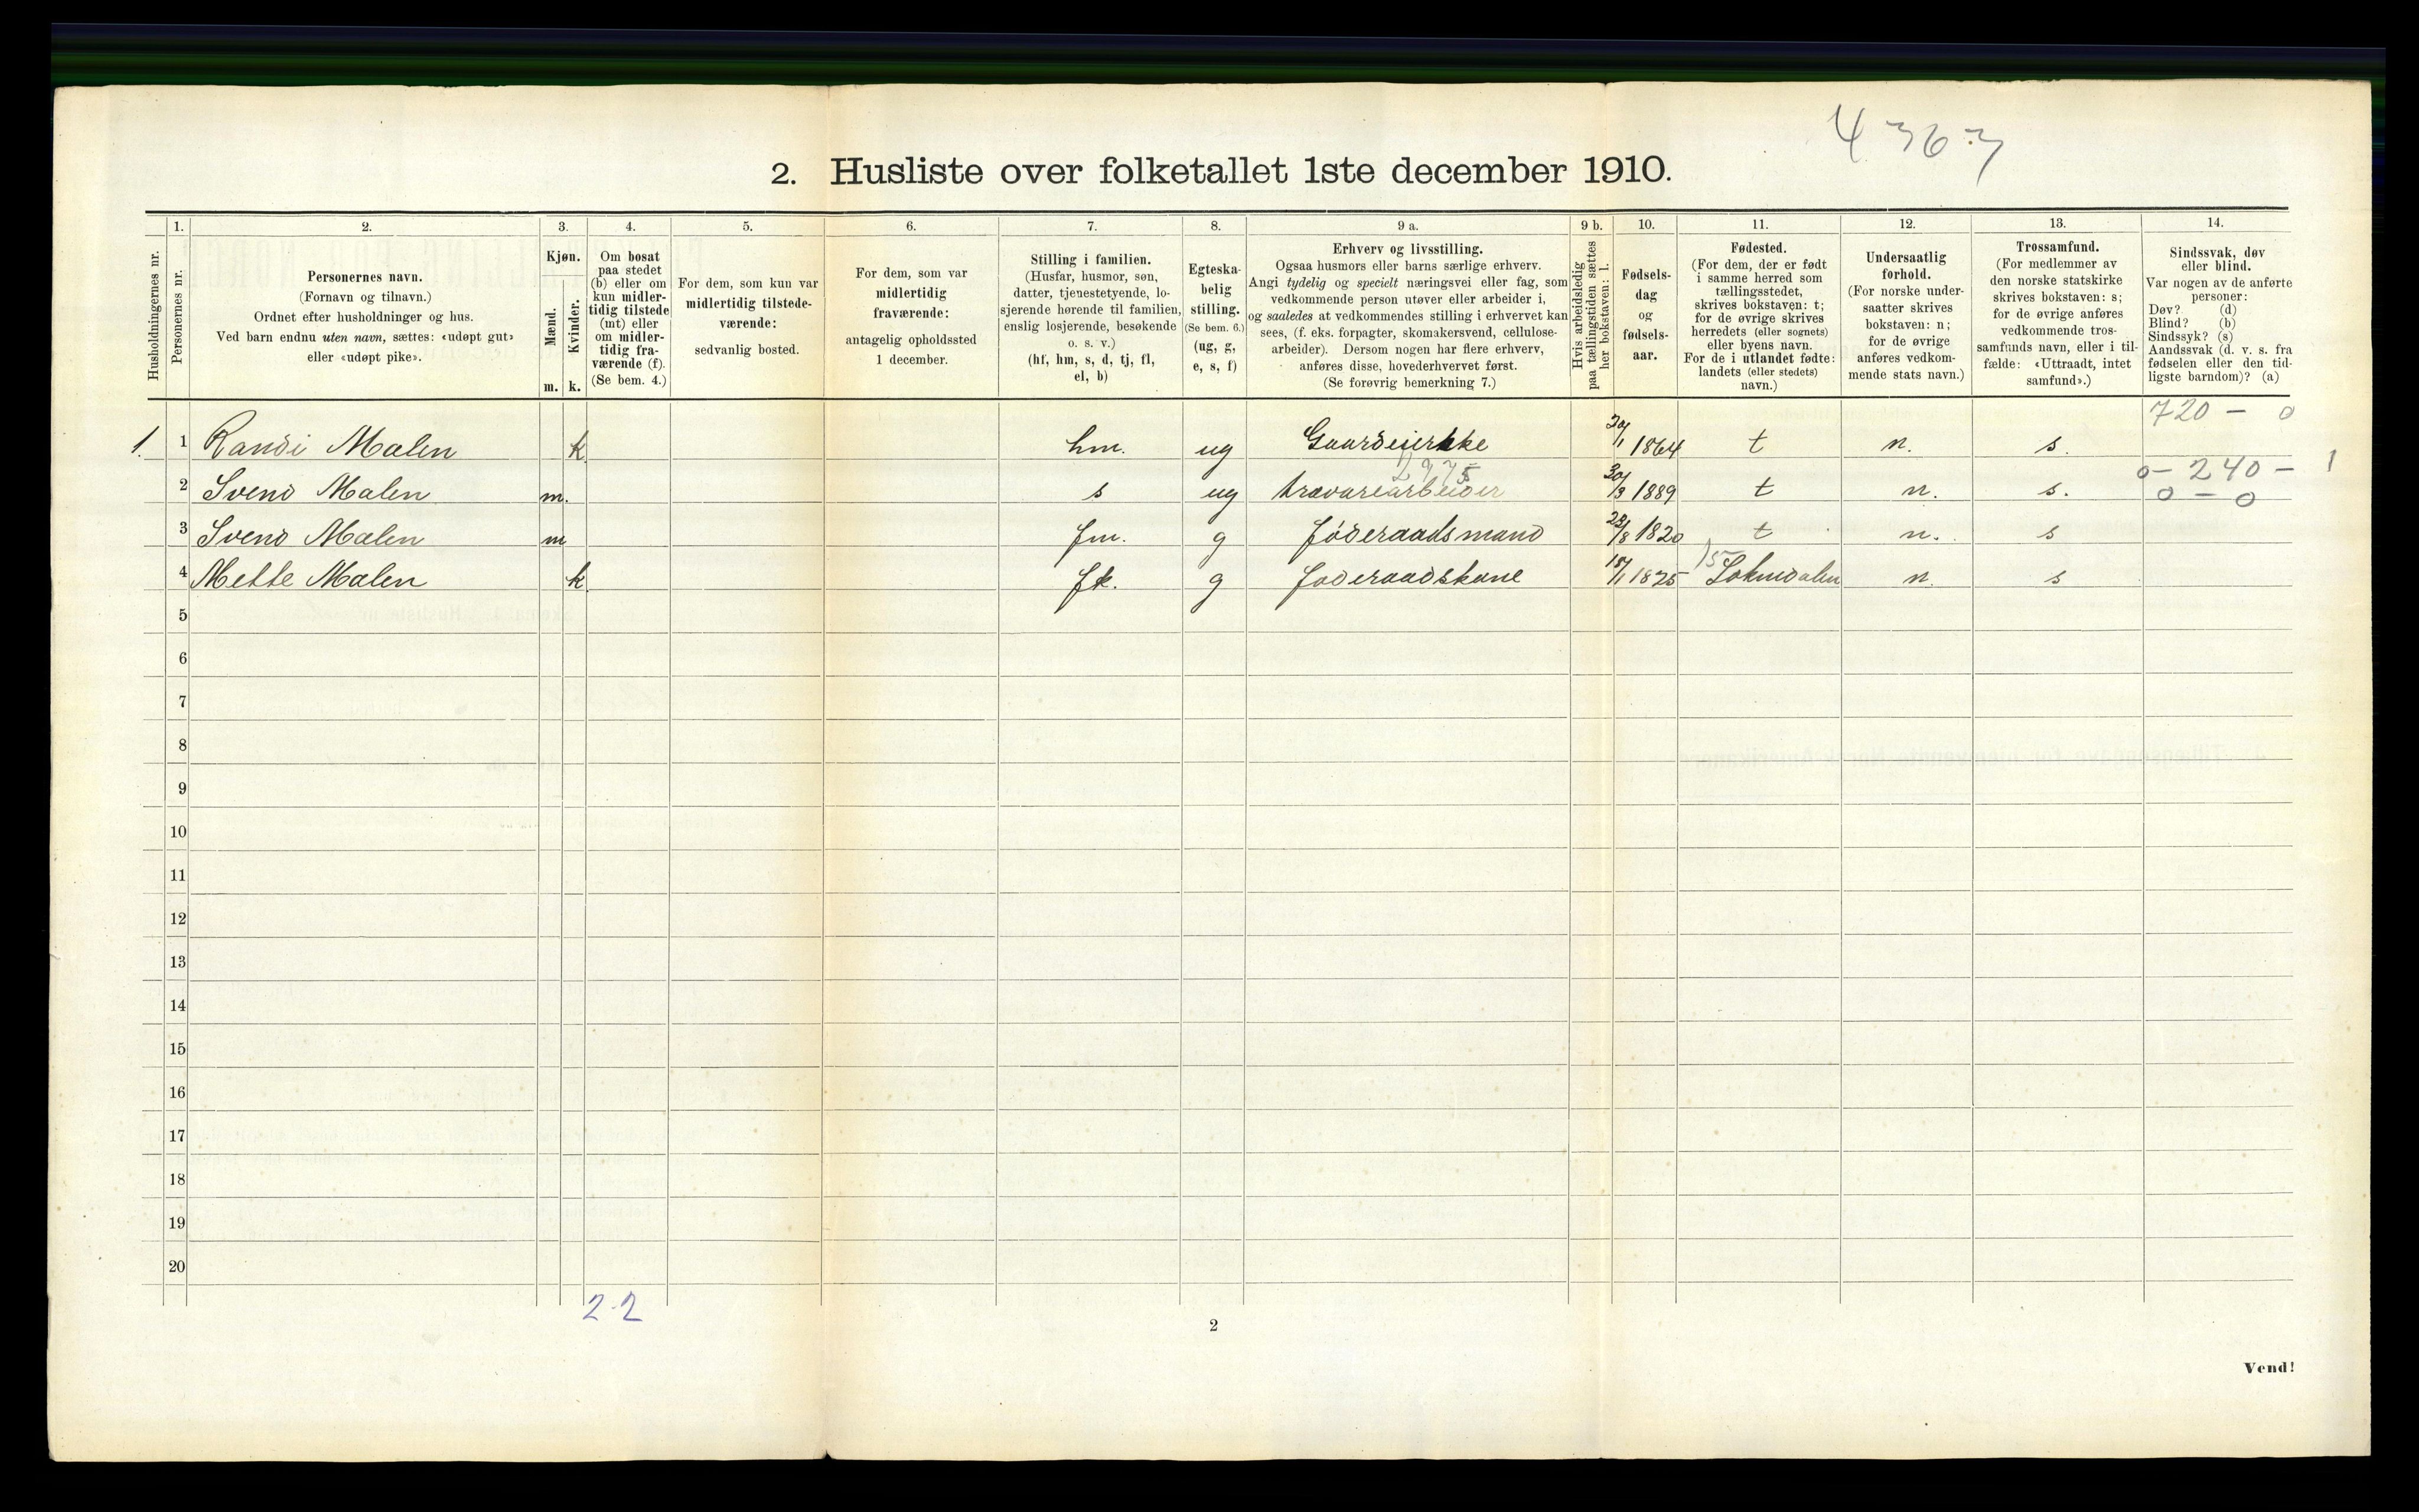 4 363
2. Husliste over folketallet 1ste december 1910.
Husholdningernes nr.
1.
Personernes nr.
2.
Personernes navn.
(Fornavn og tilnavn.)
Ordnet efter husholdninger og hus.
Ved barn endnu uten navn, sættes: «udøpt gut»
eller «udøpt pike».
3.
Kjøn.
Mænd.
Kvinder.
m. k.
4.
Om bosat
paa stedet
(b) eller om
kun midler-
tidig tilstede
(mt) eller
om midler-
tidig fra-
værende (f).
(Se bem. 4.)
5.
For dem, som kun var
midlertidig tilstede-
værende:
sedvanlig bosted.
6.
For dem, som var
midlertidig
fraværende:
antagelig opholdssted
1 december.
7.
Stilling i familien.
(Husfar, husmor, søn,
datter, tjenestetyende, lo-
sjerende hørende til familien,
enslig losjerende, besøkende
o. s. v.)
(hf, hm, s, d, tj, fl,
el, b)
8.
Egteska-
belig
stilling.
(Se bem. 6.)
(ug, g,
e, s, f)
9 a.
Erhverv og livsstilling.
Ogsaa husmors eller barns særlige erhverv.
Angi tydelig og specielt næringsvei eller fag, som
vedkommende person utøver eller arbeider i,
og saaledes at vedkommendes stilling i erhvervet kan
sees, (f. eks. forpagter, skomakersvend, cellulose-
arbeider). Dersom nogen har flere erhverv,
anføres disse, hovederhvervet først.
(Se forøvrig bemerkning 7.)
9 b.
Hvis arbeidsledig
paa tællingstiden sættes
her bokstaven: l.
10.
Fødsels-
dag
og
fødsels-
aar.
11.
Fødested.
(For dem, der er født
i samme herred som
tællingsstedet,
skrives bokstaven: t;
for de øvrige skrives
herredets (eller sognets)
eller byens navn.
For de i utlandet fødte:
landets (eller stedets)
navn.)
12.
Undersaatlig
forhold.
(For norske under-
saatter skrives
bokstaven: n;
for de øvrige
anføres vedkom-
mende stats navn.)
13.
Trossamfund.
(For medlemmer av
den norske statskirke
skrives bokstaven: s;
for de øvrige anføres
vedkommende tros-
samfunds navn, eller i til-
fælde: «Uttraadt, intet
samfund».)
14.
Sindssvak, døv
eller blind.
Var nogen av de anførte
personer:
Døv? (d)
Blind? (b)
Sindssyk? (s)
Aandssvak (d. v. s. fra
fødselen eller den tid-
ligste barndom)? (a)
720 - 0
1. 1 Randi Malen k hm. ug Gaardeierske 30/1 1864 t n. s.
0 - 240 - 1
2 Svend Malen m. s ug trævarearbeider 30/3 1889 t n. s.
0 - 0
3 Svend Malen m fm. g føderaadsmand 28/8 1820 t n. s
15
4 Mette Malen k fk. g foderaadskone 15/1 1825 Soknedalen n. s
5
6
7
8
9
10
11
12
13
14
15
16
17
18
19
20
2-2
2
Vend!